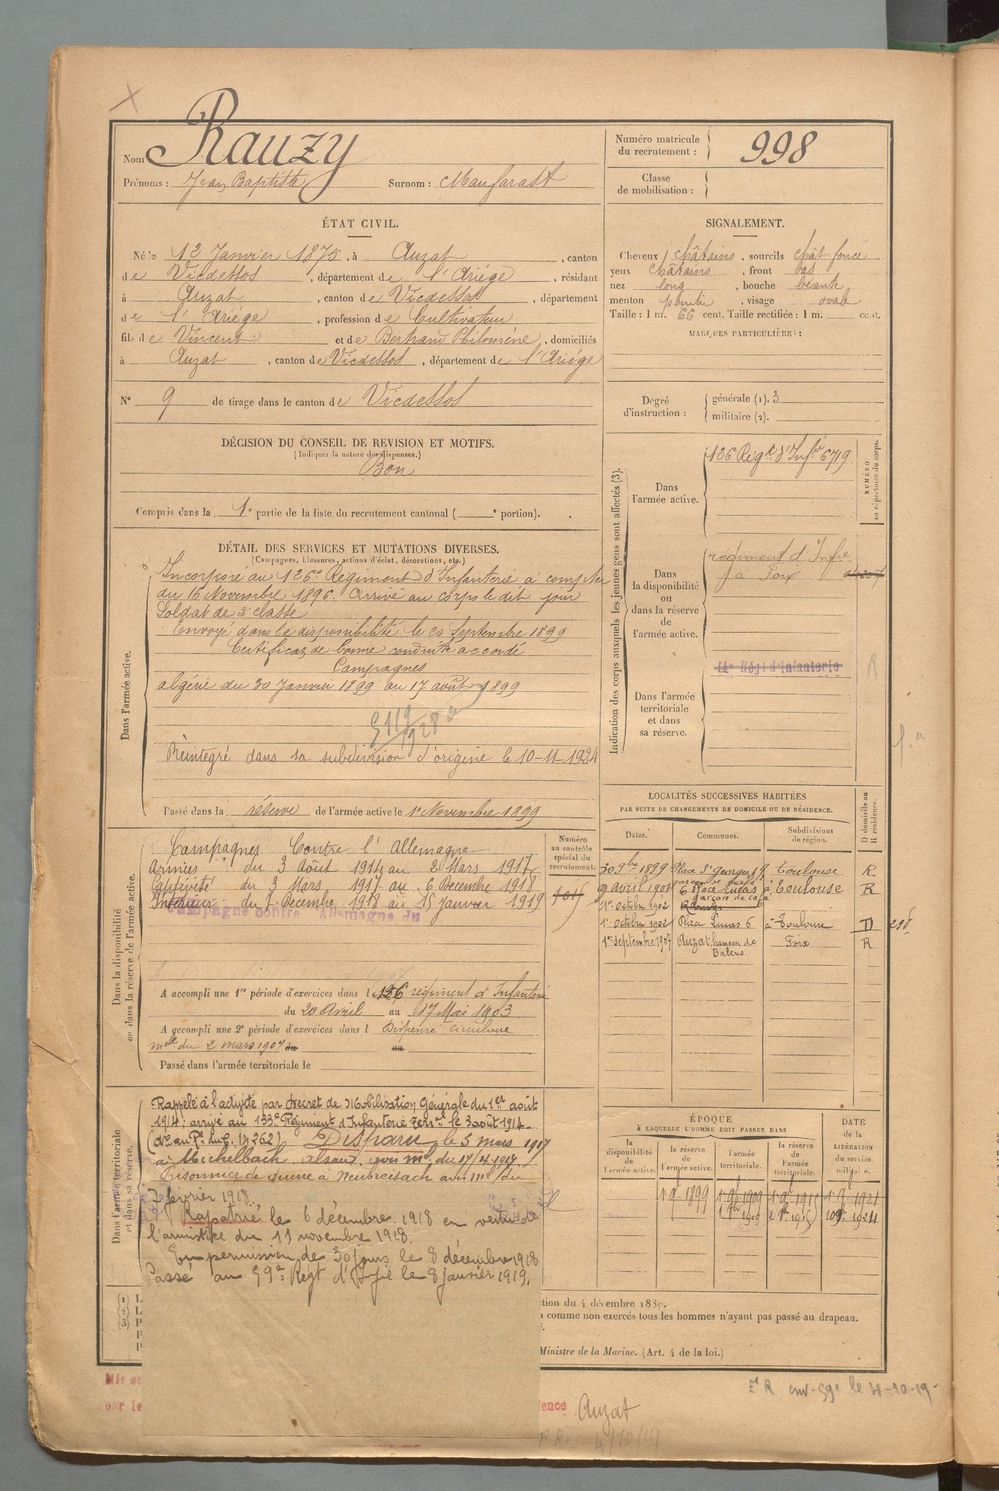 Nom Rauzy
Prénoms : Jean Baptiste Surnom :
Numéro matricule du recrutement : 998
Classe de mobilisation :
ÉTAT CIVIL.
Né le 12 Janvier 1875, à Auzat, canton
de Vicdessos, département de l'Ariége, résidant
à Auzat, canton de Vicdessos, département
de l'Ariége, profession de Cultivateur
fils de Vincent et de Bertrand Philomène, domiciliés
à Auzat, canton de Vicdessos, département de l'Ariége
N° 9 de tirage dans le canton de Vicdessos
SIGNALEMENT.
Cheveux châtains, sourcils chât foncé
yeux châtains, front bas
nez long, bouche béante
menton pointu, visage ovale
Taille : 1 m. 66 cent. Taille rectifiée : 1 m. cent.
MARQUES PARTICULIÈRES :
Degré d'instruction : générale (1). 3
militaire (2).
DÉCISION DU CONSEIL DE REVISION ET MOTIFS.
(Indiquer la nature des dispenses.)
Bon
Compris dans la 1e partie de la liste du recrutement cantonal ( e portion).
DÉTAIL DES SERVICES ET MUTATIONS DIVERSES.
(Campagnes, blessures, actions d'éclat, décorations, etc.)
Dans l'armée active.
Incorporé au 126e Régiment d'Infanterie à compter
du 16 Novembre 1896. Arrivé au corps le dit jour
Soldat de 2e classe
Envoyé dans la disponibilité le 20 Septembre 1899
Certificat de bonne conduite accordé
Campagnes
algérie du 30 Janvier 1899 au 17 août 1899
Réintegré dans sa subdivision d'origine le 10-11-1924
Passé dans la réserve de l'armée active le 1er Novembre 1899
Indication des corps auxquels les jeunes gens sont affectés (3).
Dans l'armée active.
126 Régt d'Infie 6719
NUMÉRO au répertoire du corps.
Dans la disponibilité ou dans la réserve de l'armée active.
régiment d'Infie
à Foix
Dans l'armée territoriale et dans sa réserve.
Régt d'Infanterie
R
LOCALITÉS SUCCESSIVES HABITÉES
PAR SUITE DE CHANGEMENTS DE DOMICILE OU DE RÉSIDENCE.
Dates. Communes. Subdivisions de région. D domicile ou R résidence.
30 9bre 1899 Place St Georges Toulouse R
avril 1901 6 Place Lucas à Toulouse R
garçon de café
1er octobre 1902
1er octobre 1902 Place Lucas 6 à Toulouse D
1er septembre 1907 Auzat, hameau de Foix R
Dans la disponibilité ou dans la réserve de l'armée active.
Campagnes Contre l'Allemagne
Armées du 3 Août 1914 au 2 Mars 1917
Captivité du 3 Mars 1917 au 6 Decembre 1918
Intérieur du 7 Decembre 1918 au 15 janvier 1919
Campagne contre Allemagne du
Numéro au contrôle spécial du recrutement.
A accompli une 1re période d'exercices dans le 126 régiment d'Infanterie
du 20 Avril au 17 Mai 1903
A accompli une 2e période d'exercices dans l Dispensé circulaire
melle du 2 mars 1907 du au
Passé dans l'armée territoriale le
Dans l'armée territoriale et dans sa réserve.
Rappelé à l'activité par décret de Mobilisation Générale du 1er août
1914; arrivé au 133e Régiment d'Infanterie Terrle le 3 août 1914.
Disparu le 3 mars 1917
à Michelbach, alsace, avis mel du 17/4 1917.
Prisonnier de guerre à Neubreisach avis mel du
7 février 1918.
Rapatrié le 6 décembre 1918 en vertu de
l'armistice du 11 novembre 1918.
En permission de 30 jours le 8 décembre 1918
Passé au 59e Régt d'Infie le 8 janvier 1919.
ÉPOQUE
A LAQUELLE L'HOMME DOIT PASSER DANS
la disponibilité de l'armée active. la réserve de l'armée active. l'armée territoriale. la réserve de l'armée territoriale.
DATE de la LIBÉRATION du service militaire.
1 9e 1899 1 9e 1909 1 9e 1915 1 9e 1921
(1) L
(2) L
(3) P
tion du 4 décembre 1889.
comme non exercés tous les hommes n'ayant pas passé au drapeau.
Ministre de la Marine. (Art. 4 de la loi.)
Auzat